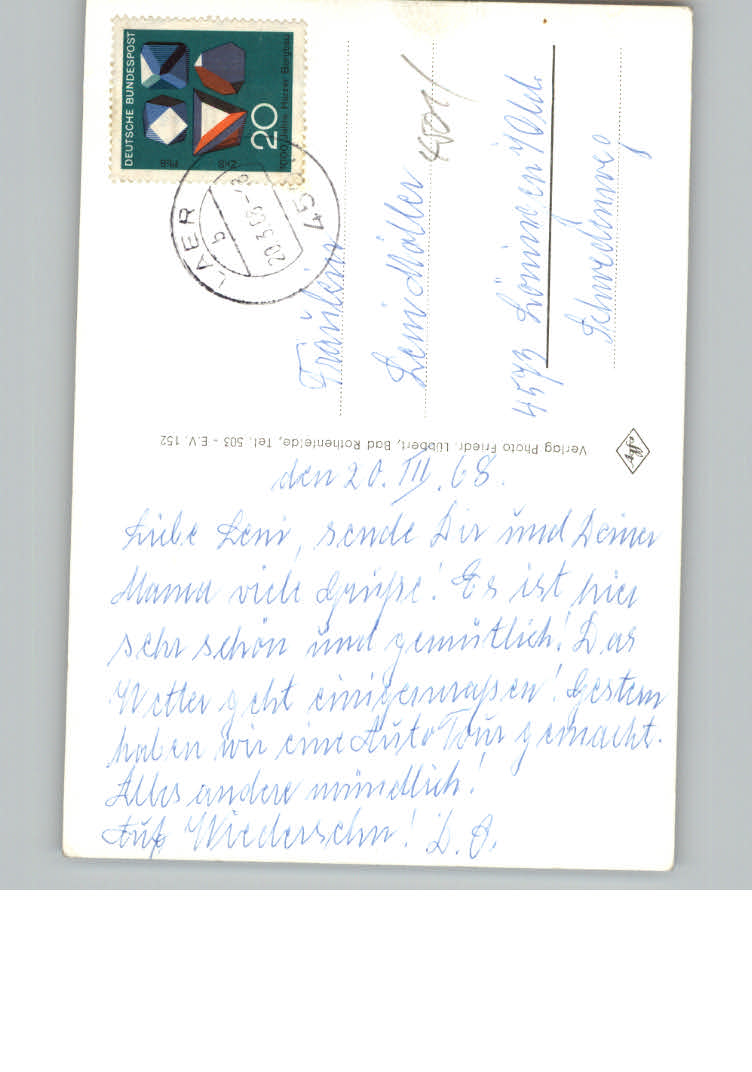 DEUTSCHE BUNDESPOST
1000 Jahre Harzer Bergbau
20
PbS
ZnS
LAER
b
20.3.68
45
Fräulein
Leni Möller
4573 Löningen i/Old.
Schwedenweg
Verlag Photo Friedr. Lübbert, Bad Rothenfelde, Tel. 503 - E.V. 152
den 20. III. 68.
Liebe Leni, sende Dir und Deiner
Mama viele Grüße! Es ist hier
sehr schön und gemütlich! Das
Wetter geht einigermaßen! Gestern
haben wir eine Auto Tour gemacht.
Alles andere mündlich!
Auf Wiedersehn! D. O.